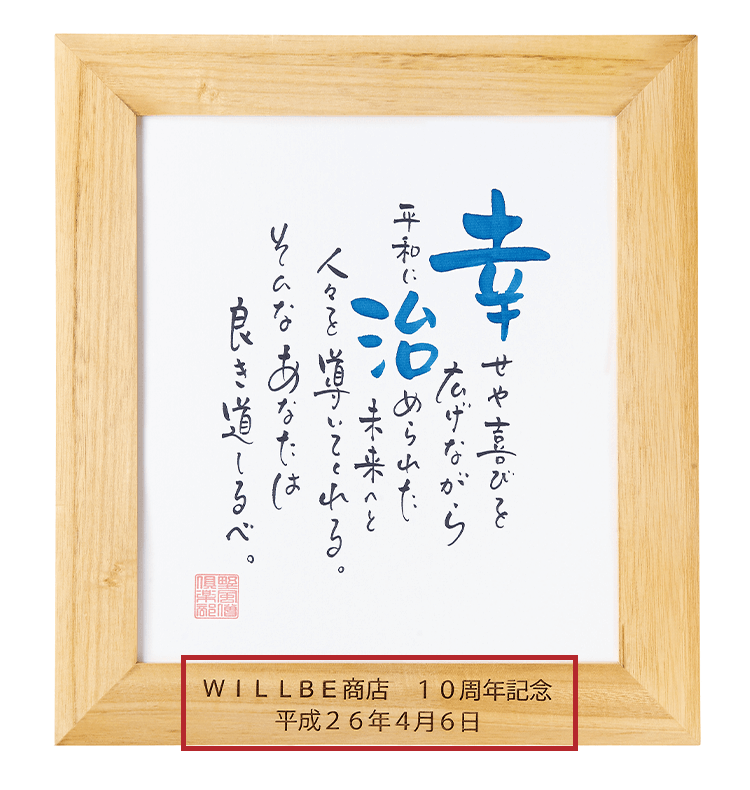 幸せや喜びを
広げながら
平和に治められた
未来へと
人々を導いてくれる。
そんなあなたは
良き道しるべ。
ＷＩＬＬＢＥ商店　１０周年記念
平成２６年４月６日